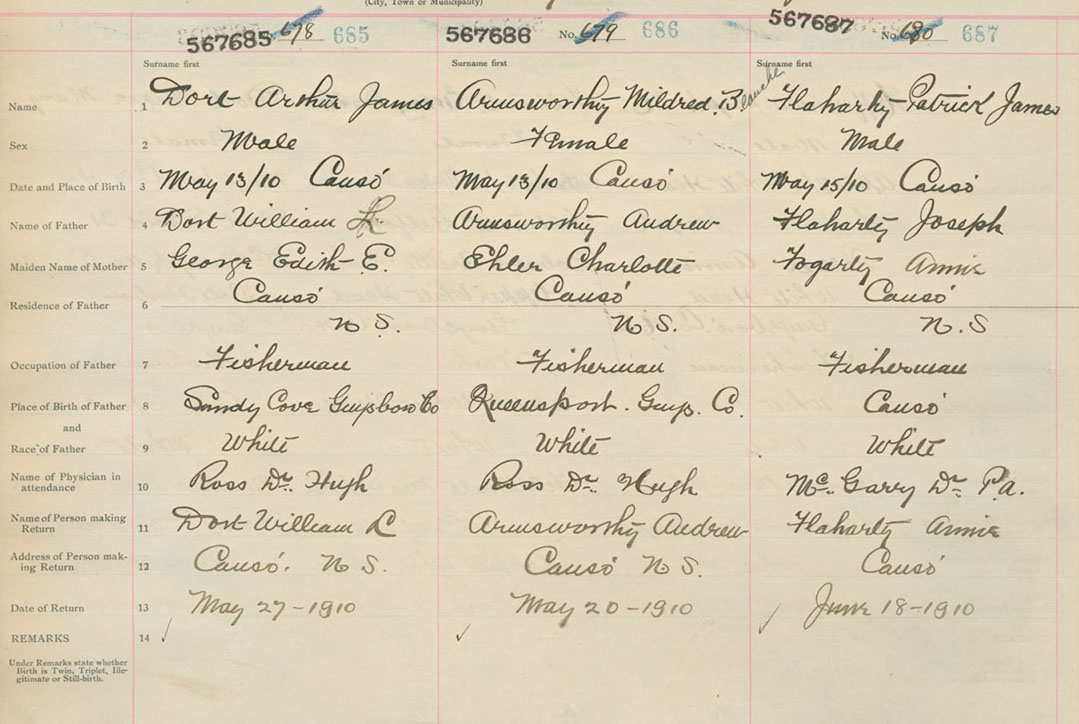 (City, Town or Municipality)
567685 678 685 567686 No. 679 686 567687 No. 680 687
Surname first Surname first Surname first
Name 1 Dort Arthur James Armsworthy Mildred B lanche Flaharty Patrick James
Sex 2 Male Female Male
Date and Place of Birth 3 May 13/10 Causó May 13/10 Causó May 15/10 Causó
Name of Father 4 Dort William Armsworthy Andrew Flaharty Joseph
Maiden Name of Mother 5 George Edith E. Ehler Charlotte Fogarty Annie
Residence of Father 6 Causó Causó Causó
N S. N S. N. S
Occupation of Father 7 Fisherman Fisherman Fisherman
Place of Birth of Father 8 Sandy Cove Guysboro Co Queensport. Guys. Co. Causó
and
Race of Father 9 White White White
Name of Physician in
attendance 10 Ross Dr. Hugh Ross Dr. Hugh Mc. Garry Dr. P.a.
Name of Person making
Return 11 Dort William Armsworthy Andrew Flaharty Annie
Address of Person mak-
ing Return 12 Causó. N S. Causó N S. Causó
Date of Return 13 May 27-1910 May 20-1910 June 18-1910
REMARKS 14
Under Remarks state whether
Birth is Twin, Triplet, Ille-
gitimate or Still-birth.